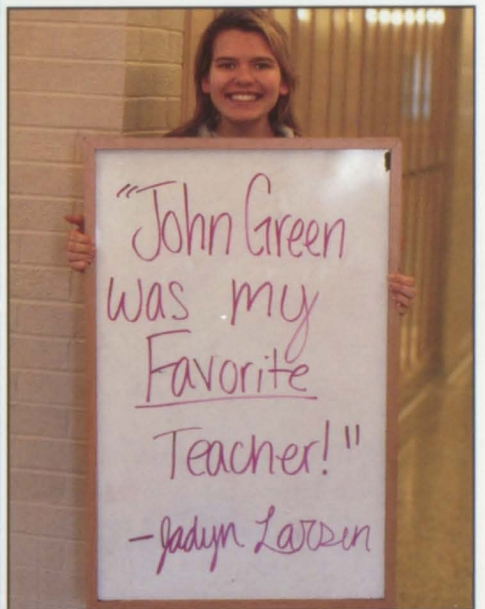 "John Green
was my
Favorite
Teacher!"
- Jadyn Larsen